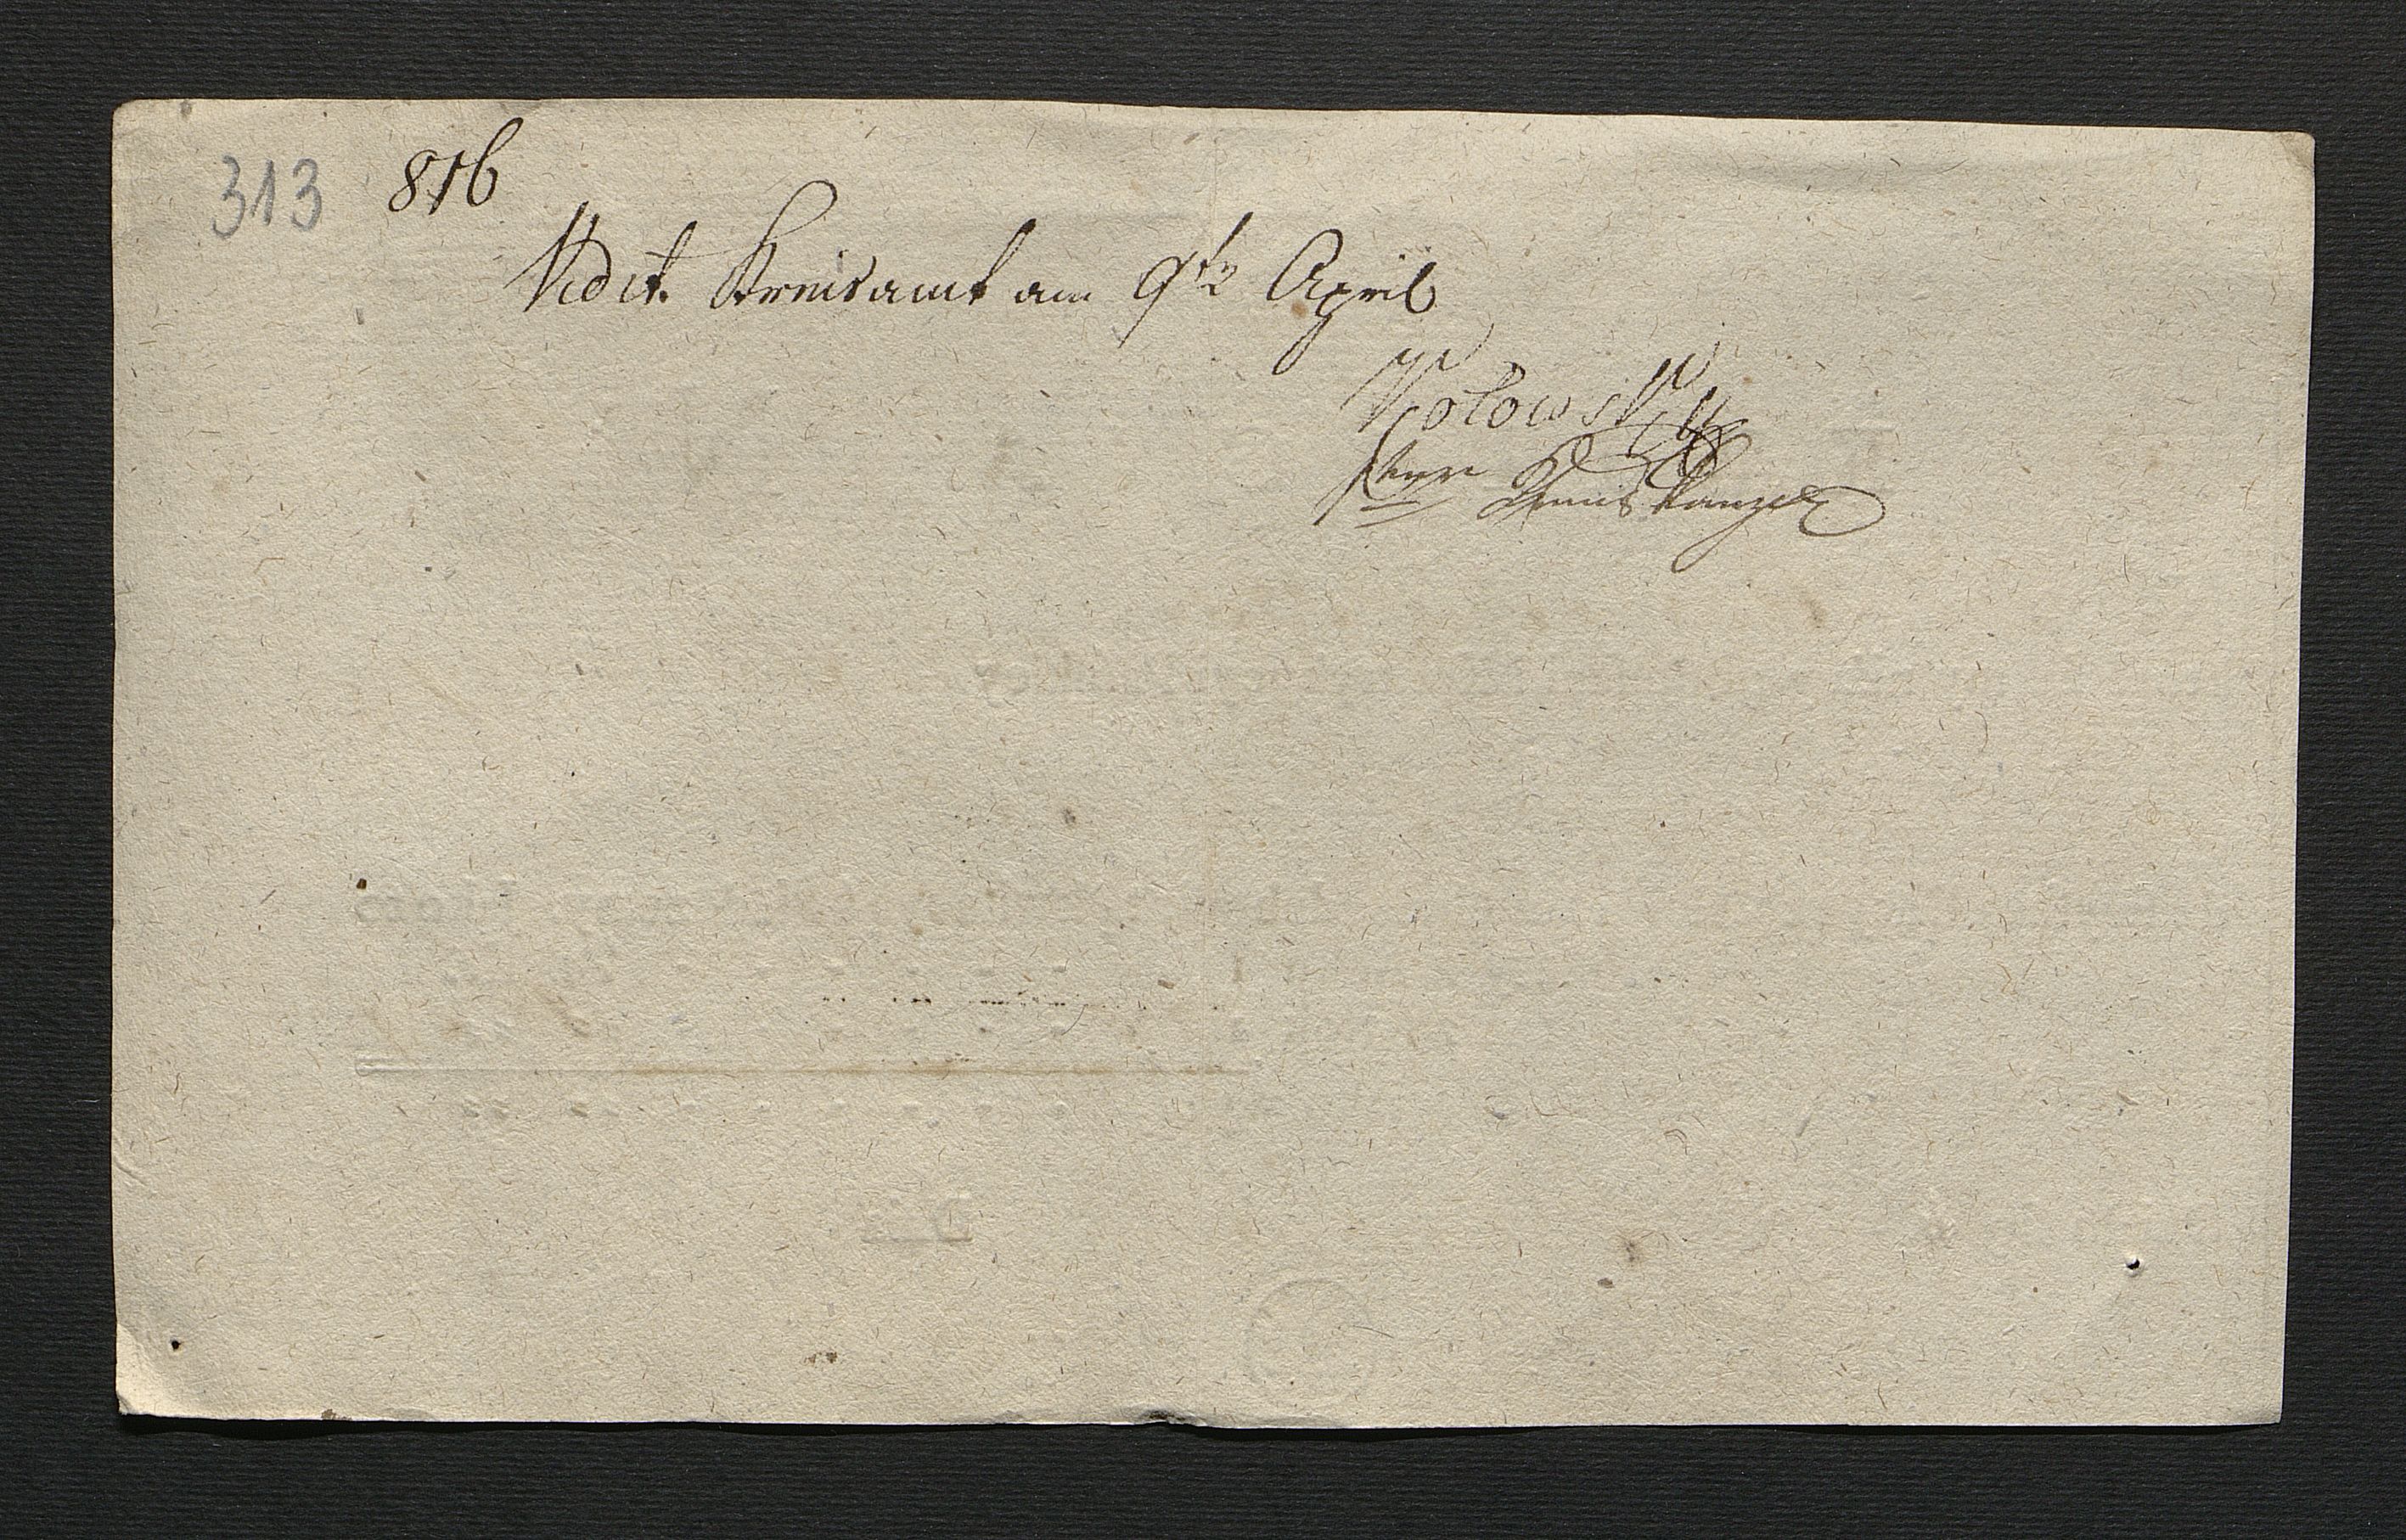 313 816
Vidit. Kreisamt am 9te April
Kolowsky
Kreiskanzl